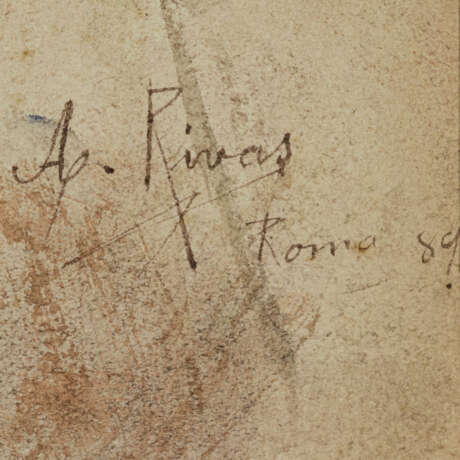 A. Rivas
Roma 89